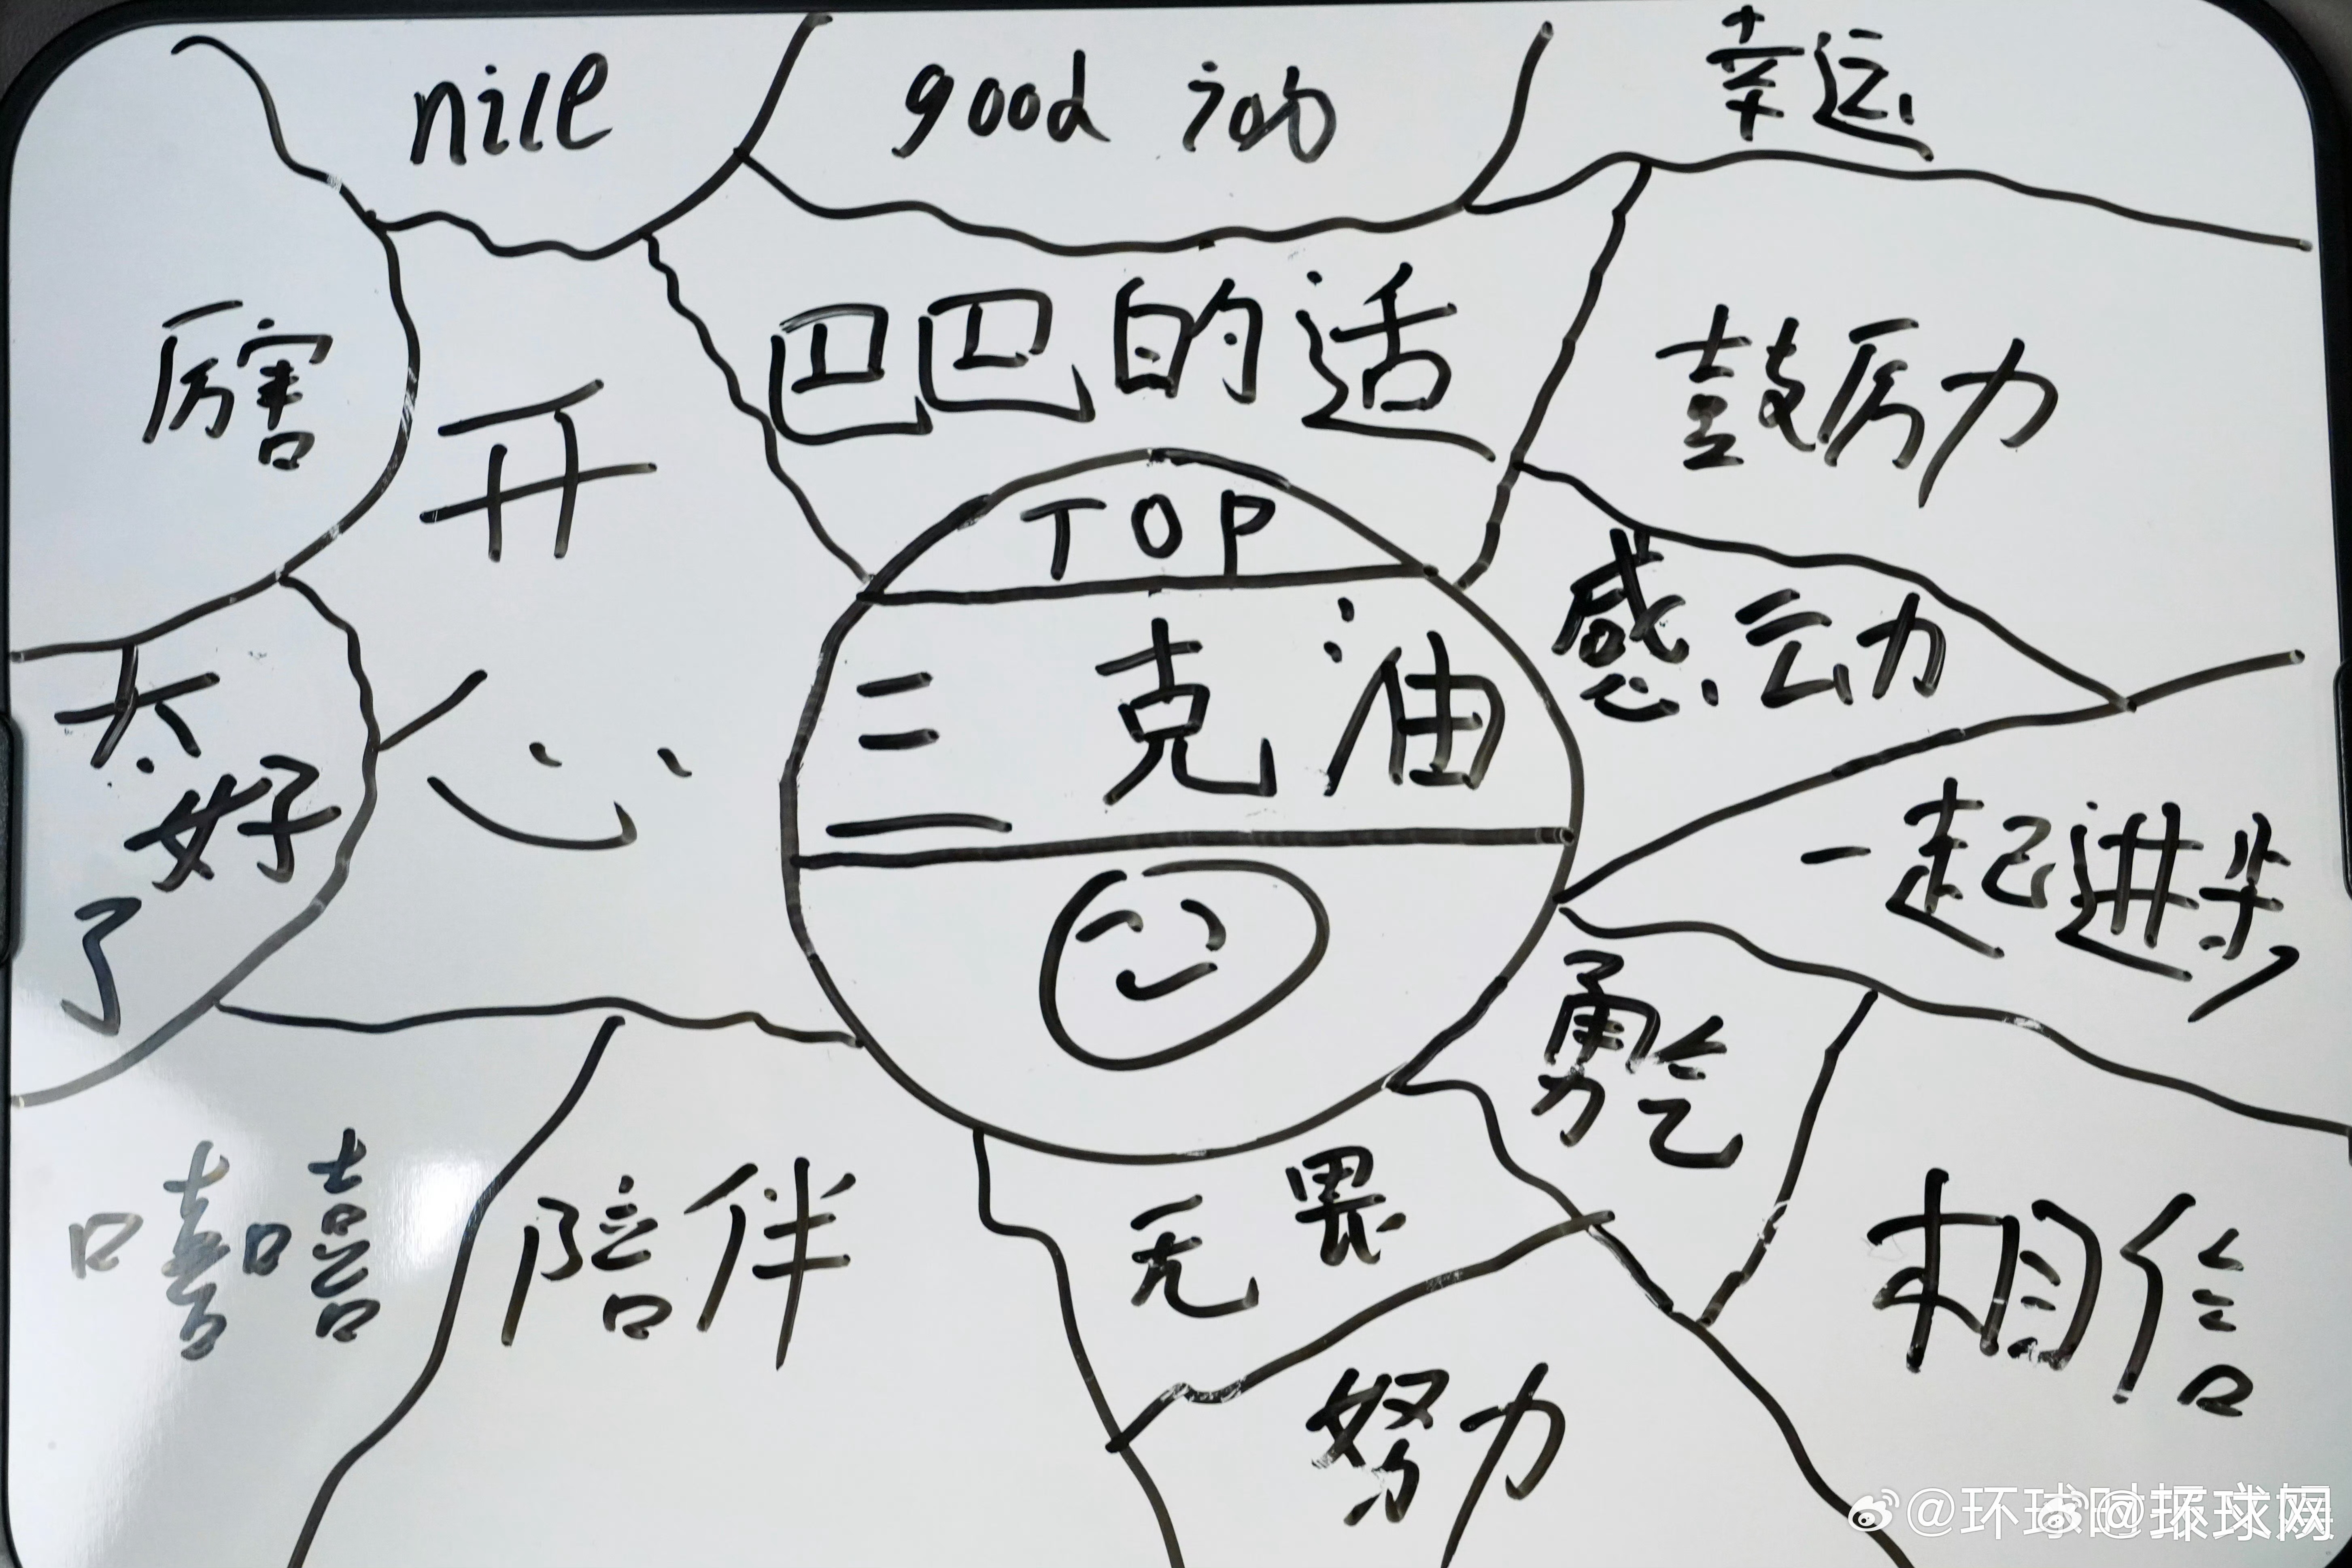 nice
good job
幸运
厉害
开
心
巴巴的适
鼓励力
TOP
三克油
感动
太
好
了
一起进步
勇气
嘻嘻
陪伴
无畏
相信
努力
@环球时报
@环球网